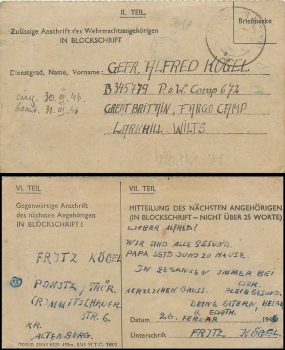 II. TEIL.
Zulässige Anschrift des Wehrmachtsangehörigen
IN BLOCKSCHRIFT
Briefmarke
Dienstgrad, Name, Vorname: GEFR. ALFRED KÖGEL
B345479 P.o.W. Camp 672
GREAT BRITAIN, TARGO CAMP
LARKHILL WILTS
30. III. 46.
31. III. 46
VI. TEIL
Gegenwärtige Anschrift
des nächsten Angehörigen
IN BLOCKSCHRIFT!
FRITZ KÖGEL
PONITZ, THÜR.
CRIMMITSCHAUER
STR. 6
KR.
ALTENBURG.
VII. TEIL
MITTEILUNG DES NÄCHSTEN ANGEHÖRIGEN
(IN BLOCKSCHRIFT — NICHT ÜBER 25 WORTE)
LIEBER ALFRED!
WIR SIND ALLE GESUND.
PAPA SEIT JUNI ZU HAUSE.
IN GEDANKEN IMMER BEI
DIR.
HERZLICHEN GRUSS.
DEINE ELTERN
U. EDITH.
Datum 26. FEBRUAR 1946
Unterschrift FRITZ KÖGEL.